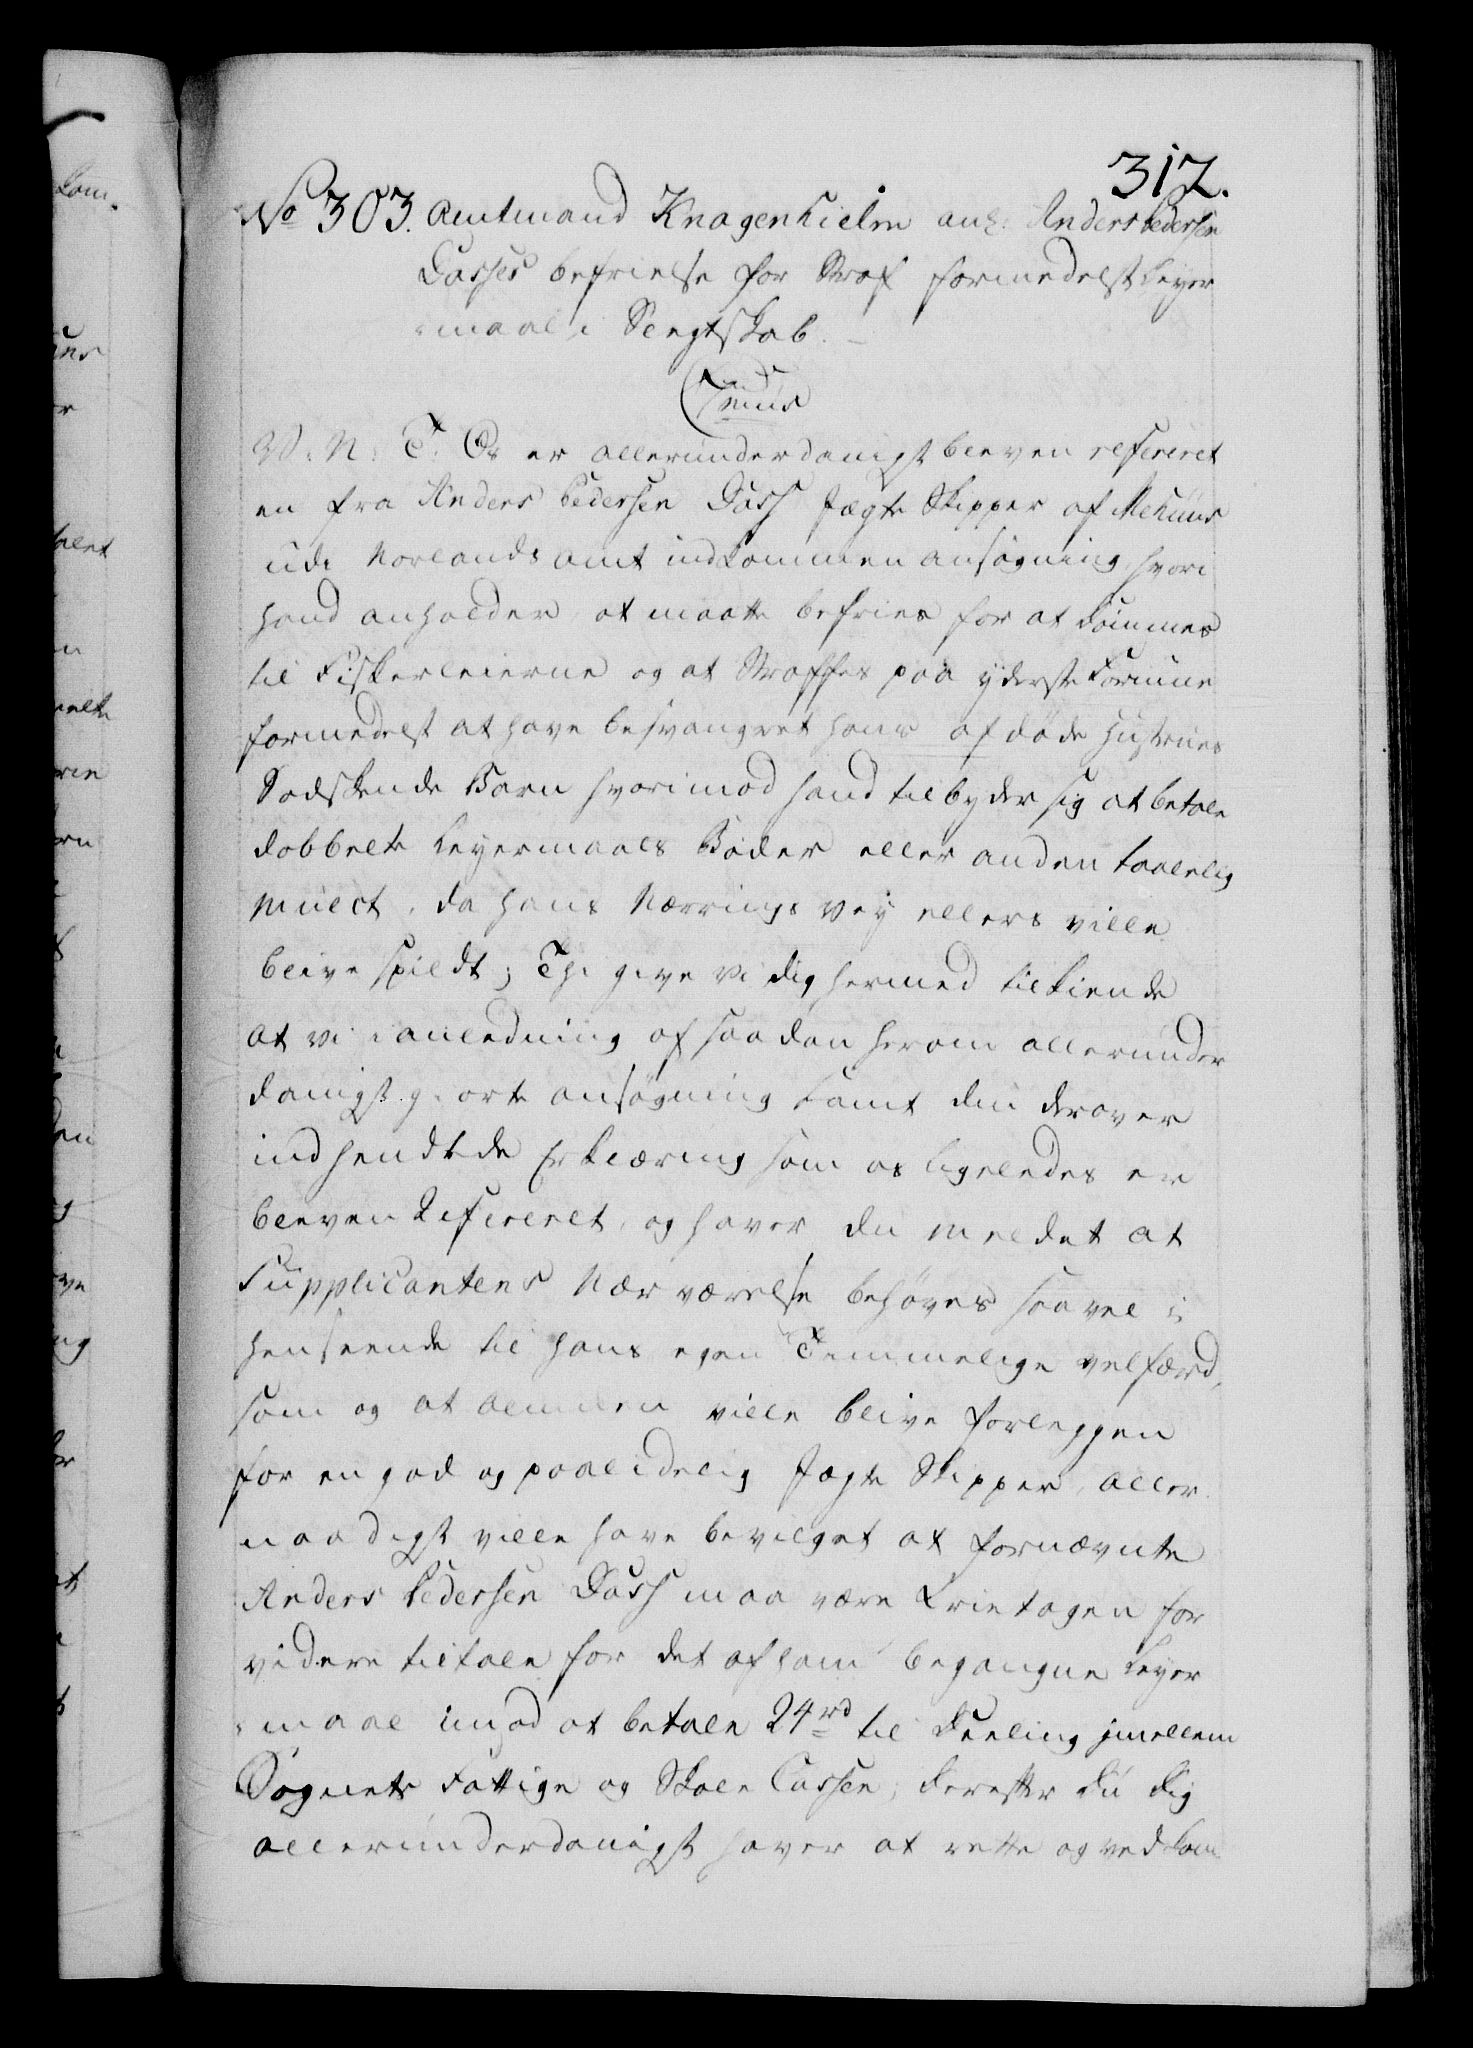 312.
No 303. Amtmand Knagenhielm anl: Anders Pedersen
Dasses befrielse for Straf formedelst Leyer
-maal i Slegtskab.
V: N: T: Os er allerunderdanigst bleven refereret
en fra Anders Pedersen Dass Jægte Skipper af
udi Norlands amt indkommen ansøgning, hvori
hand anholder at maatte befries for at dømmes
til Fiskerleierne og at Straffes paa yderste Formue
formedelst at have besvangret hans afdøde Hustrues
Sødskende Barn hvorimod hand tilbyder sig at betale
dobbelte Leyermaals Bøder eller anden taalelig
Mulct, da hans Nærrings Vey ellers ville
blive spildt; Thi give Vi dig hermed tilkiende
at vi i anledning af saadan herom allerunder
danigst giorte ansøgning samt din derover
indhendtede Erklæring som os ligeledes er
bleven Refereret, og haver du meldet at
Supplicantens Nærværelse behøves saavel i
henseende til hans egen Temmelige velfærd,
som og at almuen ville blive forleggen
for en god og paalidelig Jægte Skipper, aller
naadigst ville have bevilget at fornævnte
Anders Pedersen Dass maa være Frietagen for
videre tiltale for det af ham begangne Leyer
-maal imod at betale 24 rd til Deeling imellem
Sognets Fattige og Skole Cassen, derefter du dig
allerunderdanigst haver at rette og vedkom